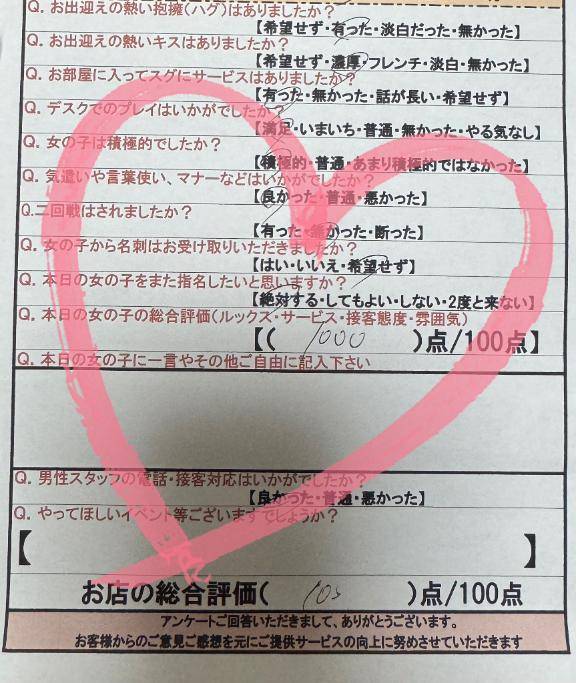 Q. お出迎えの熱い抱擁(ハグ)はありましたか？
【希望せず・有った・淡白だった・無かった】
Q. お出迎えの熱いキスはありましたか？
【希望せず・濃厚・フレンチ・淡白・無かった】
Q. お部屋に入ってスグにサービスはありましたか？
【有った・無かった・話が長い・希望せず】
Q. デスクでのプレイはいかがでしたか？
【満足・いまいち・普通・無かった・やる気なし】
Q. 女の子は積極的でしたか？
【積極的・普通・あまり積極的ではなかった】
Q. 気遣いや言葉使い、マナーなどはいかがでしたか？
【良かった・普通・悪かった】
Q.二回戦はされましたか？
【有った・無かった・断った】
Q. 女の子から名刺はお受け取りいただきましたか？
【はい・いいえ・希望せず】
Q. 本日の女の子をまた指名したいと思いますか？
【絶対する・してもよい・しない・2度と来ない】
Q. 本日の女の子の総合評価(ルックス・サービス・接客態度・雰囲気)
【( 1000 )点/100点】
Q. 本日の女の子に一言やその他ご自由に記入下さい
Q. 男性スタッフの電話・接客対応はいかがでしたか？
【良かった・普通・悪かった】
Q. やってほしいイベント等ございますでしょうか？
【 】
お店の総合評価( )点/100点
アンケートご回答いただきまして、ありがとうございます。
お客様からのご意見ご感想を元にご提供サービスの向上に努めさせていただきます